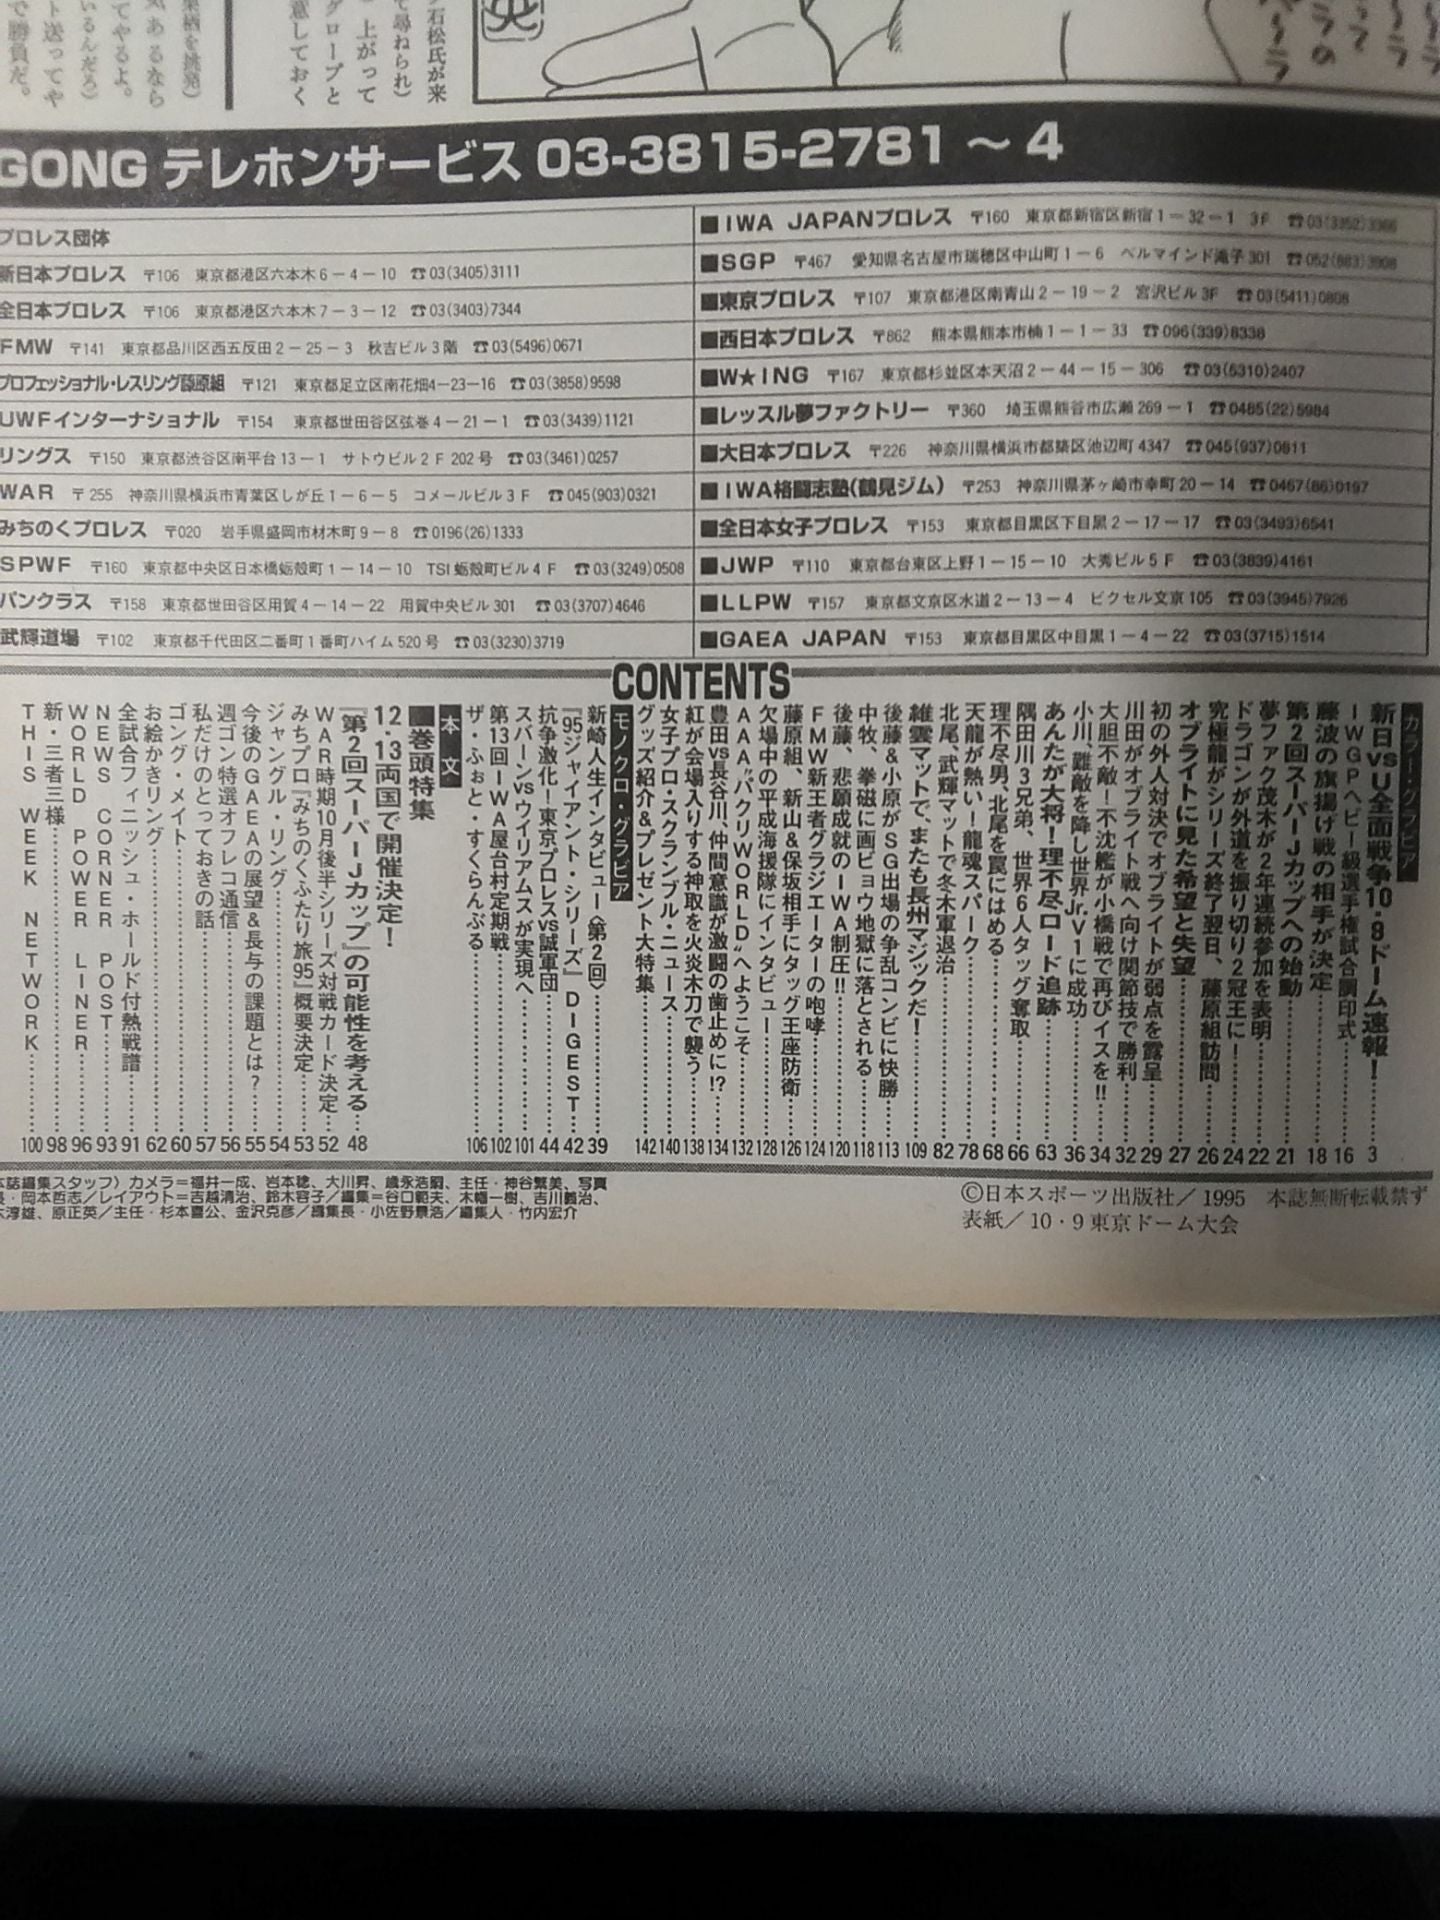 石松氏が来
て尋ねられ)
上がって
グローブと
意しておく
栗栖を挑発)
気あるなら
てやるよ。
いるんだろ)
ト送ってや
で勝負だ。
GONG テレホンサービス 03-3815-2781～4
プロレス団体
新日本プロレス 〒106 東京都港区六本木6－4－10 ☎03(3405)3111
全日本プロレス 〒106 東京都港区六本木7－3－12 ☎03(3403)7344
FMW 〒141 東京都品川区西五反田2－25－3 秋吉ビル3階 ☎03(5496)0671
プロフェッショナル・レスリング藤原組 〒121 東京都足立区南花畑4－23－16 ☎03(3858)9598
UWFインターナショナル 〒154 東京都世田谷区弦巻4－21－1 ☎03(3439)1121
リングス 〒150 東京都渋谷区南平台13－1 サトウビル2F 202号 ☎03(3461)0257
WAR 〒255 神奈川県横浜市青葉区しが丘1－6－5 コメールビル3F ☎045(903)0321
みちのくプロレス 〒020 岩手県盛岡市材木町9－8 ☎0196(26)1333
SPWF 〒160 東京都中央区日本橋蛎殻町1－14－10 TSI蛎殻町ビル4F ☎03(3249)0508
パンクラス 〒158 東京都世田谷区用賀4－14－22 用賀中央ビル301 ☎03(3707)4646
武輝道場 〒102 東京都千代田区二番町1番町ハイム520号 ☎03(3230)3719
■IWA JAPANプロレス 〒160 東京都新宿区新宿1－32－1 3F ☎03(3352)3366
■SGP 〒467 愛知県名古屋市瑞穂区中山町1－6 ベルマインド滝子301 ☎052(883)3908
■東京プロレス 〒107 東京都港区南青山2－19－2 宮沢ビル3F ☎03(5411)0808
■西日本プロレス 〒862 熊本県熊本市楠1－1－33 ☎096(339)8338
■W★ING 〒167 東京都杉並区本天沼2－44－15－306 ☎03(5310)2407
■レッスル夢ファクトリー 〒360 埼玉県熊谷市広瀬269－1 ☎0485(22)5984
■大日本プロレス 〒226 神奈川県横浜市都築区池辺町4347 ☎045(937)0811
■IWA格闘志塾(鶴見ジム) 〒253 神奈川県茅ヶ崎市幸町20－14 ☎0467(86)0197
■全日本女子プロレス 〒153 東京都目黒区下目黒2－17－17 ☎03(3493)6541
■JWP 〒110 東京都台東区上野1－15－10 大秀ビル5F ☎03(3839)4161
■LLPW 〒157 東京都文京区水道2－13－4 ピクセル文京105 ☎03(3945)7926
■GAEA JAPAN 〒153 東京都目黒区中目黒1－4－22 ☎03(3715)1514
CONTENTS
カラー・グラビア
新日vsU全面戦争10・9ドーム速報！……3
IWGPヘビー級選手権試合調印式……16
藤波の旗揚げ戦の相手が決定……18
第2回スーパーJカップへの始動……21
夢ファク茂木が2年連続参加を表明……22
ドラゴンが外道を振り切り2冠王に！……24
究極龍がシリーズ終了翌日、藤原組訪問……26
オブライトに見た希望と失望……27
初の外人対決でオブライトが弱点を露呈……29
川田がオブライト戦へ向け関節技で勝利……32
大胆不敵！不沈艦が小橋戦で再びイスを!!……34
小川、難敵を降し世界Jr.V1に成功……36
あんたが大将！理不尽ロード追跡……63
隅田川3兄弟、世界6人タッグ奪取……66
理不尽男、北尾を罠にはめる……68
天龍が熱い！龍魂スパーク……78
北尾、武輝マットで冬木軍退治……82
維震マットで、またも長州マジックだ！……109
後藤&小原がSG出場の争乱コンビに快勝……113
中牧、拳磁に画ビョウ地獄に落とされる……118
後藤、悲願成就のIWA制圧!!……120
FMW新王者グラジエーターの咆哮……124
藤原組、新山&保坂相手にタッグ王座防衛……126
欠場中の平成海援隊にインタビュー……128
AAA"パクリWORLD"へようこそ……132
豊田vs長谷川、仲間意識が激闘の歯止めに!?……134
紅が会場入りする神取を火炎木刀で襲う……138
女子プロ・スクランブル・ニュース……140
グッズ紹介&プレゼント大特集……142
モノクロ・グラビア
新崎人生インタビュー〈第2回〉……39
『95ジャイアント・シリーズ』DIGEST……42
抗争激化！東京プロレスvs誠軍団……44
スパーンvsウイリアムスが実現へ……101
第13回IWA屋台村定期戦……102
ザ・ふぉと・すくらんぶる……106
本文
■巻頭特集
12・13両国で開催決定！
『第2回スーパーJカップ』の可能性を考える……48
WAR時期10月後半シリーズ対戦カード決定……52
みちプロ『みちのくふたり旅95』概要決定……53
ジャングル・リング……54
今後のGAEAの展望&長与の課題とは？……55
週ゴン特選オフレコ通信……56
私だけのとっておきの話……57
ゴング・メイト……60
お絵かきリング……62
全試合フィニッシュ・ホールド付熱戦譜……91
NEWS CORNER POST……93
WORLD POWER LINER……96
新・三者三様……98
THIS WEEK NETWORK……100
本誌編集スタッフ〉カメラ＝福井一成、岩本稔、大川昇、歳永浩嗣、主任・神谷繁美、写真
長・岡本哲志／レイアウト＝吉越清治、鈴木容子／編集＝谷口範夫、木幡一樹、吉川義治、
木淳雄、原正英／主任・杉本喜公、金沢克彦／編集長・小佐野景浩／編集人・竹内宏介
©日本スポーツ出版社／1995 本誌無断転載禁ず
表紙／10・9東京ドーム大会